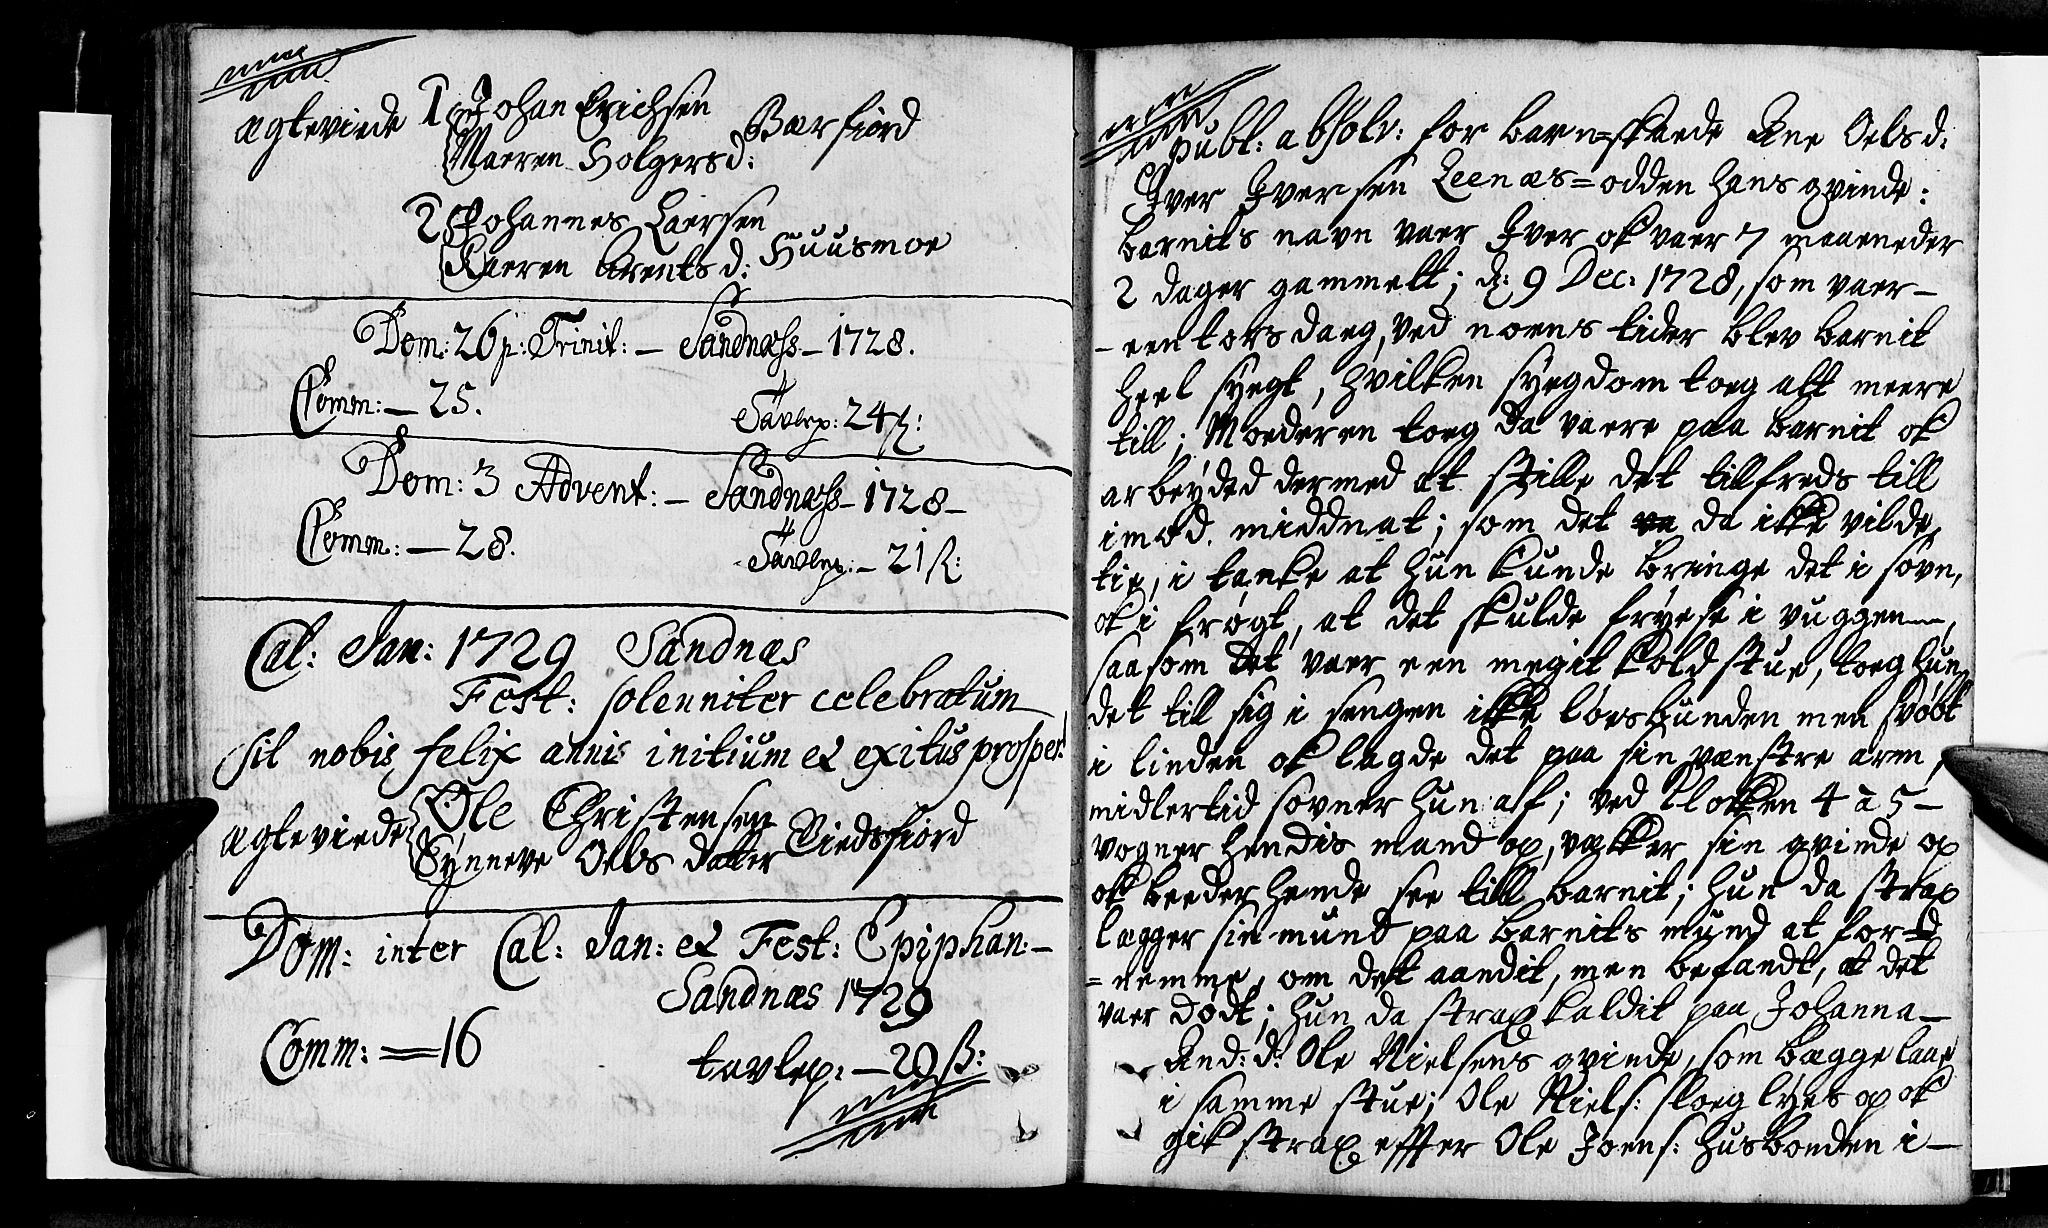 ægteviede 1 Johan Erichsen
Maeren Holgersd: Bærfiord
2 Johannes Laersen
Kaeren Arentsd: Huusmoe
Dom: 26 p: Trinit: – Sandnæss – 1728.
Comm: – 25.
Tavlep: 24 ß:
Dom: 3 Advent: – Sandnæss – 1728 –
Comm: – 28.
Tavlep: – 21 ß:
Cal: Jan: 1729 Sandnæs
Fest: solenniter celebratum
sit nobis felix annis initium et exitus prosper!
ægteviede Ole Christensen
Synneve Oels datter
Dom: inter Cal: Jan: et Fest: Epiphan: –
Sandnæs 1729
Comm: = 16
tavlep: – 20 ß:
publ: absolv: for barn=skaede Ane Oelsd:
Iver Iversen Leenæs=odden hans qvinde:
barnits navn vaer Iver ok vaer 7 maaneder
2 dager gammelt; d: 9 Dec: 1728, som vaer –
– een torsdaeg, ved noens tider blev barnit
heel syegt, hvilken syegdom toeg alt meere
till; Moederen toeg da vaere paa barnit ok
arbeyded dermed at stille det tillfreds till
imod middnat; som det da ikke vilde
tie, i tanke at hun kunde bringe det i søvn,
ok i frøgt, at det skulde fryese i vuggen,
saasom det vaer een megit kold stue, toeg hun
det till sig i sengen ikke løes bunden men svøbt
i linden ok lagde det paa sin vænstre arm,
midlertid søvner hun af; ved klokken 4 à 5 –
vogner hendis mand op, vækker sin qvinde op
ok beeder hende see till barnit; hun da strax
lægger sin mund paa barnits mund at for=
=nemme, om det aandit, men befandt, at det
vaer dødt; hun da strax kaldit paa Johanna –
And: d: Ole Nielsens qvinde, som bægge laae
i samme stue; Ole Niels: sloeg lyes op ok
gik strax effter Ole Joens: husbonden i –